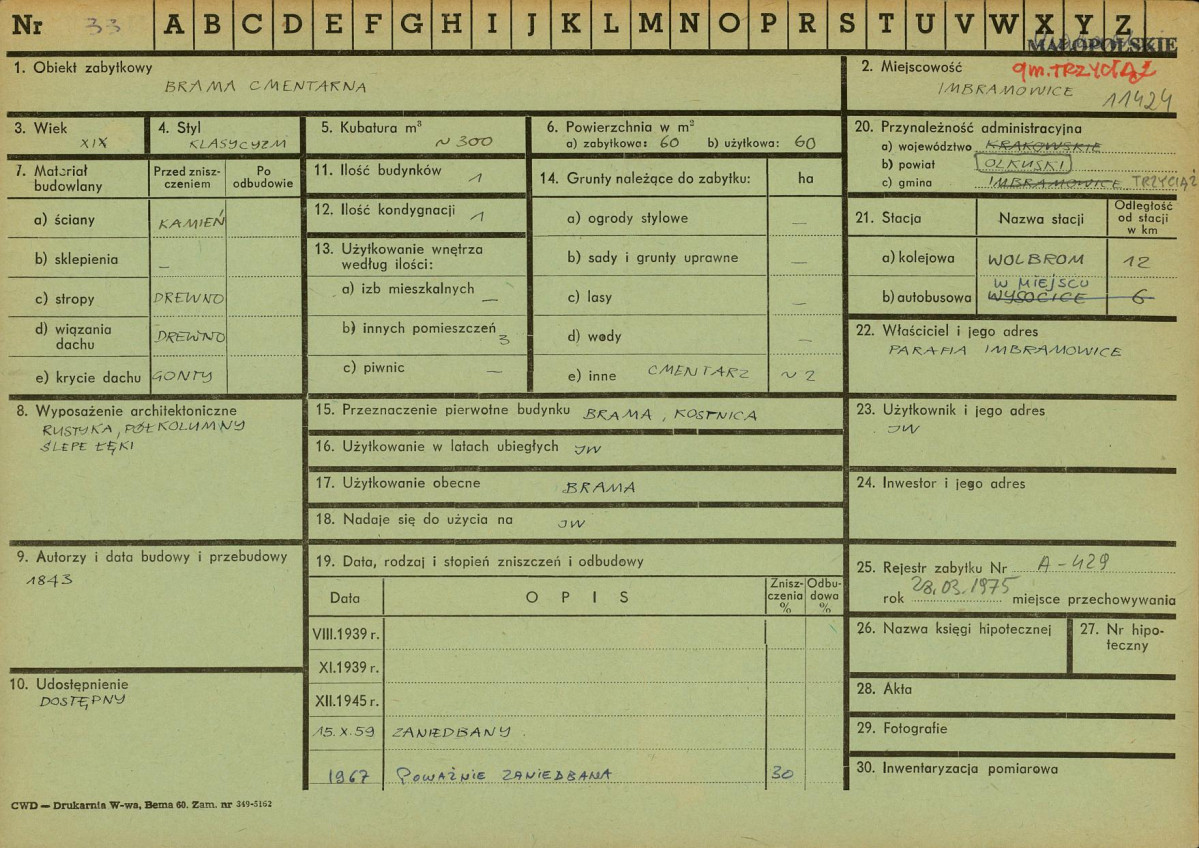 Nr 33 A B C D E F G H I J K L M N O P R S T U V W X Y Z
MAŁOPOLSKIE
1. Obiekt zabytkowy
BRAMA CMENTARNA
2. Miejscowość
gm. TRZYCIĄŻ
IMBRAMOWICE
11424
3. Wiek
XIX
4. Styl
KLASYCYZM
5. Kubatura m³
~ 300
6. Powierzchnia w m²
a) zabytkowa: 60 b) użytkowa: 60
20. Przynależność administracyjna
a) województwo KRAKOWSKIE
b) powiat OLKUSKI
c) gmina IMBRAMOWICE TRZYCIĄŻ
7. Materiał budowlany
Przed zniszczeniem
Po odbudowie
a) ściany KAMIEŃ
b) sklepienia –
c) stropy DREWNO
d) wiązania dachu DREWNO
e) krycie dachu GONTY
11. Ilość budynków 1
12. Ilość kondygnacji 1
13. Użytkowanie wnętrza według ilości:
a) izb mieszkalnych —
b) innych pomieszczeń 3
c) piwnic —
14. Grunty należące do zabytku: ha
a) ogrody stylowe —
b) sady i grunty uprawne —
c) lasy —
d) wody —
e) inne CMENTARZ ~ 2
21. Stacja
Nazwa stacji
Odległość od stacji w km
a) kolejowa WOLBROM 12
W MIEJSCU
b) autobusowa WYSOCICE 6
22. Właściciel i jego adres
PARAFIA IMBRAMOWICE
8. Wyposażenie architektoniczne
RUSTYKA, PÓŁKOLUMNY
ŚLEPE ŁĘKI
15. Przeznaczenie pierwotne budynku BRAMA, KOSTNICA
16. Użytkowanie w latach ubiegłych JW
17. Użytkowanie obecne BRAMA
18. Nadaje się do użycia na JW
23. Użytkownik i jego adres
JW
24. Inwestor i jego adres
9. Autorzy i data budowy i przebudowy
1843
19. Data, rodzaj i stopień zniszczeń i odbudowy
Data
OPIS
Zniszczenia %
Odbudowa %
VIII.1939 r.
XI.1939 r.
XII.1945 r.
15.X.59 ZANIEDBANY.
1967 POWAŻNIE ZANIEDBANA 30
25. Rejestr zabytku Nr A-429
rok 28.03.1975 miejsce przechowywania
26. Nazwa księgi hipotecznej
27. Nr hipoteczny
10. Udostępnienie
DOSTĘPNY
28. Akta
29. Fotografie
30. Inwentaryzacja pomiarowa
CWD — Drukarnia W-wa, Bema 60. Zam. nr 349-5162